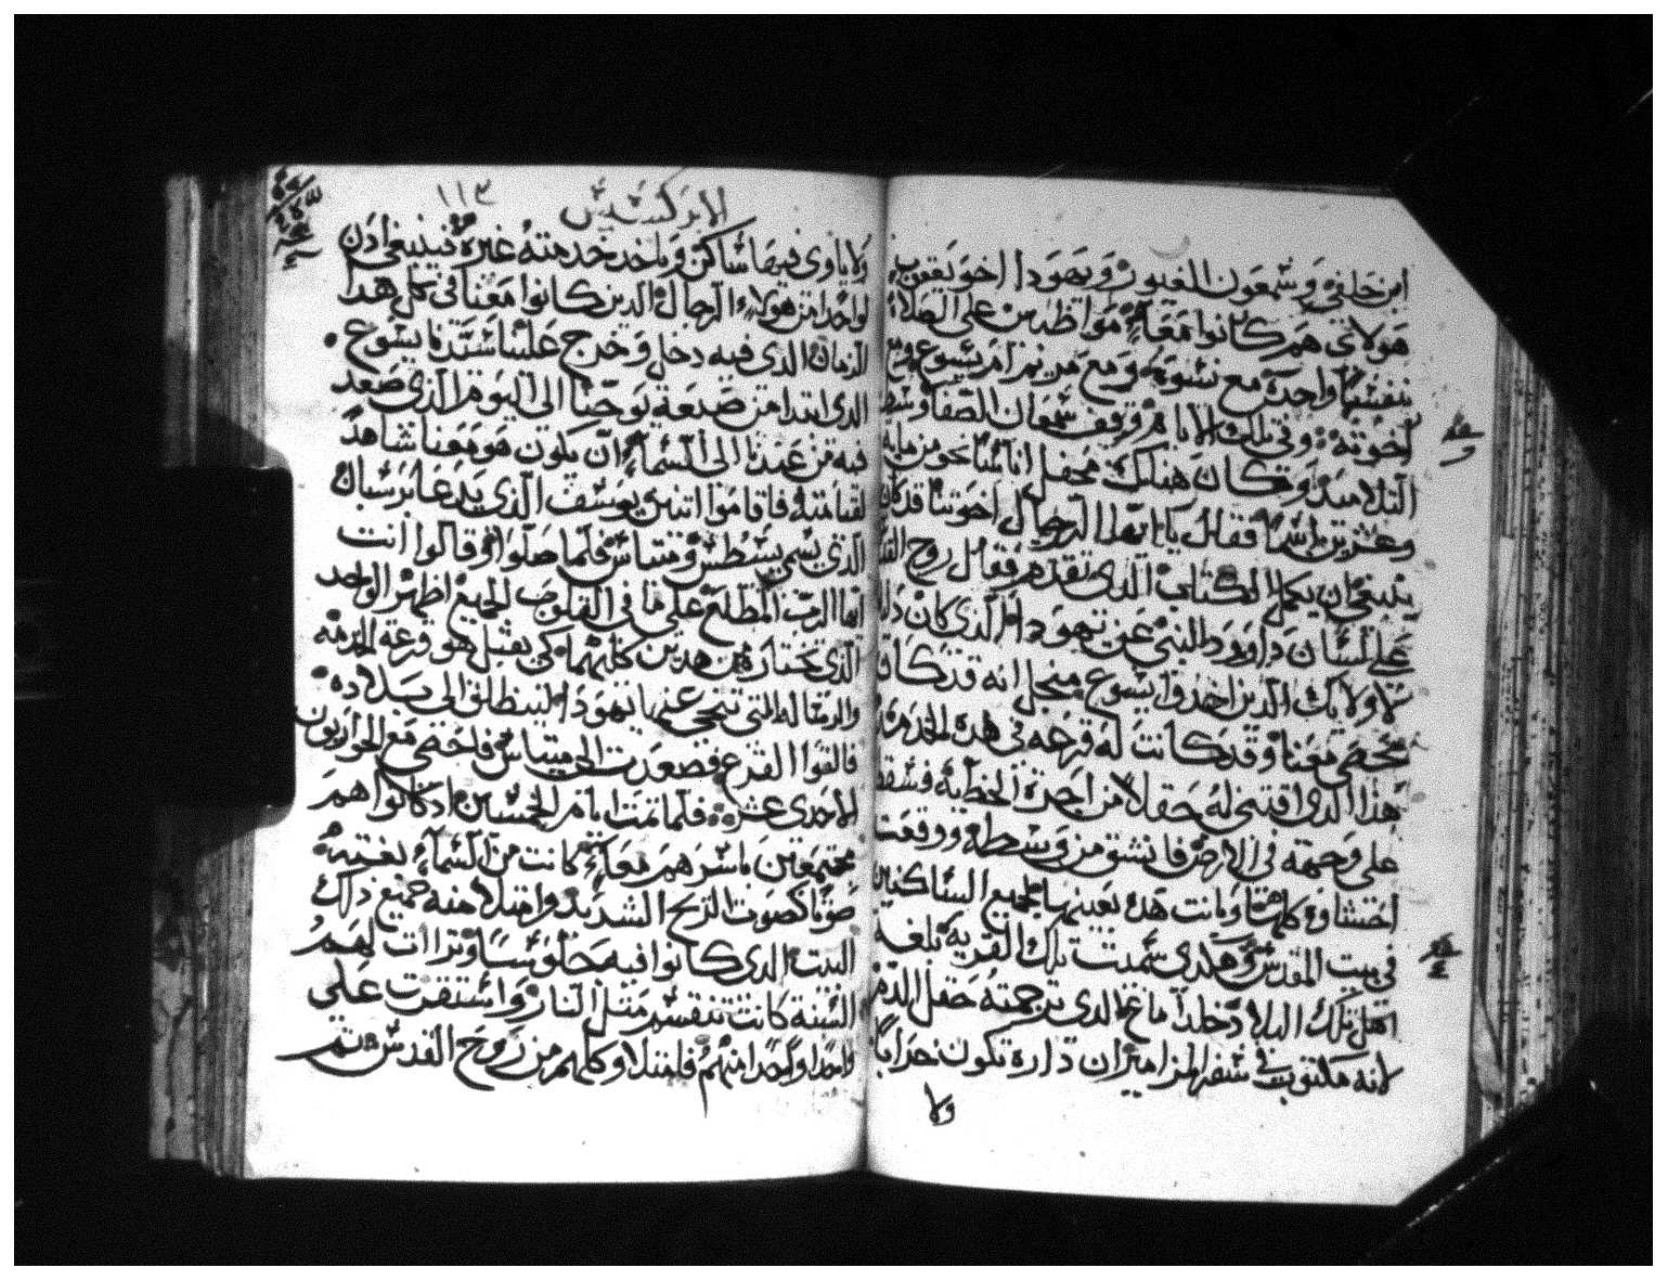 ابن حلفي وشمعون الغيور ويهودا اخو يعقوب
هولاي هم كانوا معاً مواظبين على الصلاة
بنفس واحدة مع نسوة ومع مريم ام يسوع ومع
اخوته وفي تلك الايام وقف شمعان الصفا وسط
التلاميذ وكان هناك محفل اناسًا نحو من مايه
وعشرين اسمًا فقال يا ايها الرجال اخوتنا قد كان
ينبغي ان يكمل الكتاب الذي تقدم فقال روح القدس
على لسان داوود النبي عن يهودا الذي كان دليلا
لاولايك الذين اخذوا يسوع من اجل انه قد كان
محصى معنا وقد كانت له قرعه في هذه الخدمة
هذا الذي اقتنى له حقلا من اجرة الخطية فسقط
على وجهه في الارض فانشق من وسطه ووقعت
احشاوه كلها وبانت هذه بعينها لجميع الساكنين
في بيت المقدس وهكذى سميت تلك القرية بلغة
اهل تلك البلاد حلد اماغ الذي ترجمته حقل الدم
لانه مكتوب في سفر المزامير ان داره تكون خرابًا
ولا
الابركسيس ١١٣
ولا ياوى فيها ساكن وياخد خدمته غيره فينبغي ادن
لواحدًا من هولاء الرجال الدين كانوا معنا في كل هدا
الزمان الدى فيه دخل وخرج علينا سيدنا يسوع
الدى ابتدا من صبغة يوحنا الى اليوم الذي صعد
فيه من عندنا الى السماء ان يكون هو معنا شاهدً
لقيامته فاقاموا اتنين يوسف الذي يدعا برسبان
الذي يسمي يسطس ومتياس فلما صلوا وقالوا انت
ايها الرب المطلع على ما في القلوب للجميع اظهر الواحد
الذي تختاره من هدين كليهما كي يقبل هو قرعة الخدمه
والرساله التي تنحى عنها يهودا لينطلق الى بلاده
فالقوا القرع فصعدت الى متياس فاحصى مع الحواريون
الاحدى عشر فلما تمت ايام الخمسين اد كانوا هم
مجتمعين باسرهم معاً كانت من السماء بغتة
صوتًا كصوت الريح الشديد وامتلا منه جميع ذلك
البيت الدى كانوا فيه جلوسًا وتراات لهم
السنة كانت تنقسم متل النار واستقرت على
واحدًا واحدًا منهم فامتلاو كلهم من روح القدس ثم